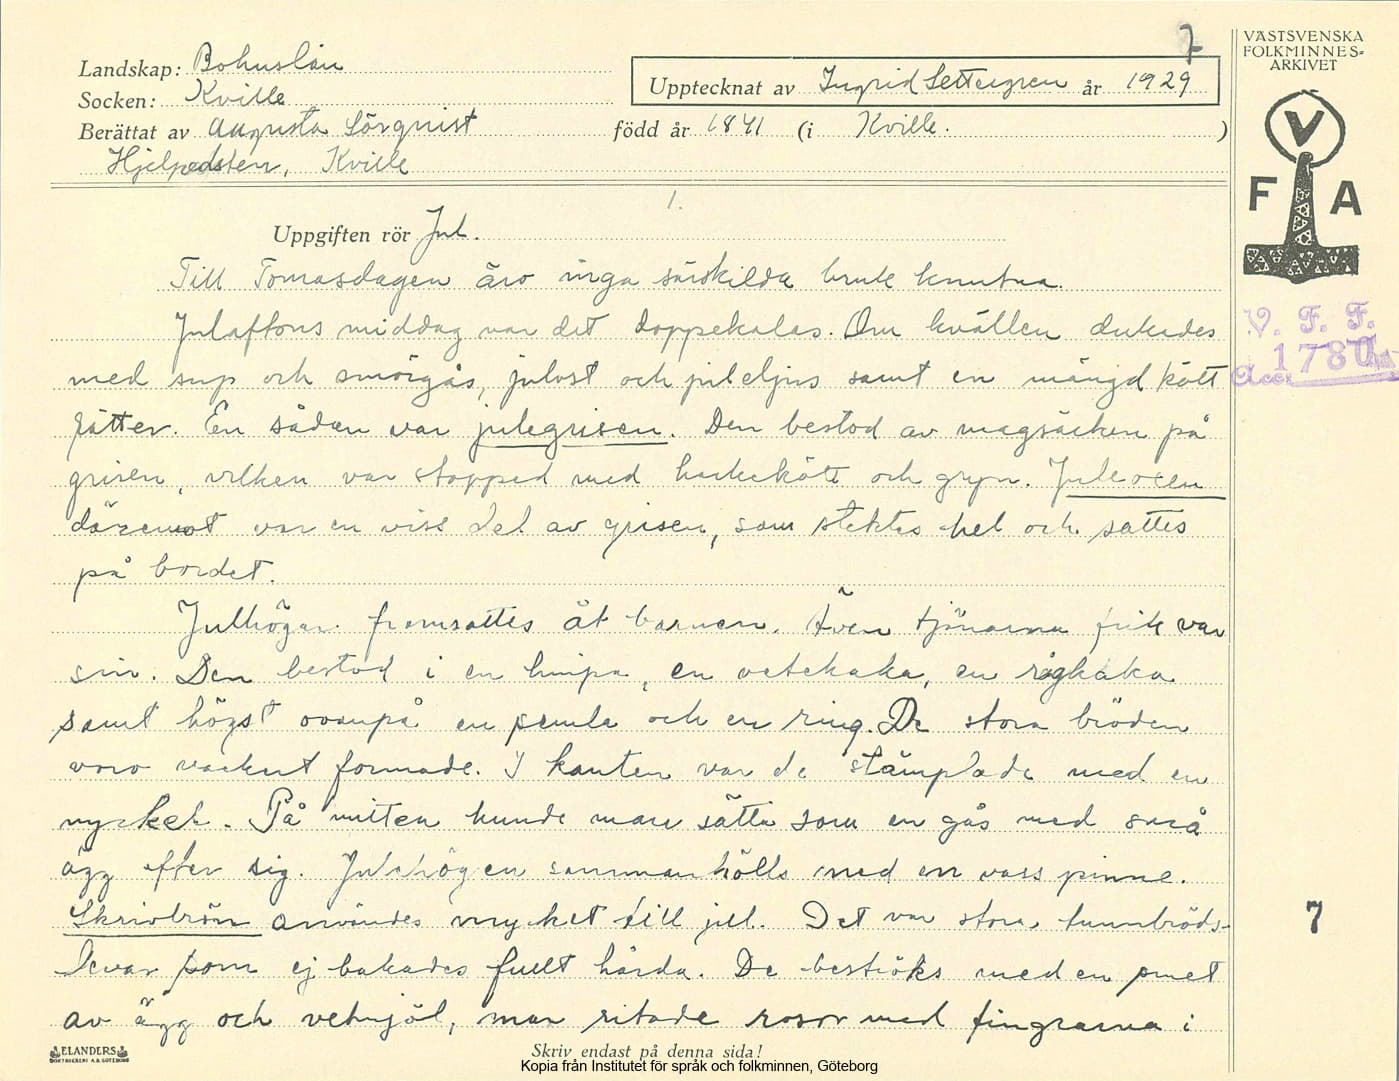 7
VÄSTSVENSKA
FOLKMINNES=
ARKIVET
Landskap: Bohuslän
Upptecknat av Ingrid Settergren år 1929
Socken: Kville
Berättat av Augusta Lövquist född år 1841 (i Kville. )
Hjelpedsten, Kville
V
F A
1.
Uppgiften rör Jul.
Till Tomasdagen äro inga särskilda bruk knutna.
Julaftons middag var det doppekalas. Om kvällen dukades
med sup och smörgås, julost och juleljus samt en mängd kött
rätter. En sådan var julegrisen. Den bestod av magsäcken på
grisen, vilken var stoppad med hackekött och gryn. Juleoxen
däremot var en viss del av grisen, som stektes hel och sattes
på bordet.
Julhögar framsattes åt barnen. Även tjänarna fick var
sin. Den bestod i en limpa, en vetekaka, en rågkaka
samt högst ovanpå en semla och en ring. De stora bröden
voro vackert formade. I kanten var de stämplade med en
nyckel. På mitten kunde man sätta som en gås med små
ägg efter sig. Julehögen sammanhölls med en vass pinne.
Skrivbrön användes mycket till jul. Det var stora, tunnbröds-
levar som ej bakades fullt hårda. De beströks med en smet
av ägg och vetmjöl, man ritade rosor med fingrarna i
V. F. F.
Acc. 1780
7
ELANDERS
BOKTRYCKERI A.B. GÖTEBORG
Skriv endast på denna sida!
Kopia från Institutet för språk och folkminnen, Göteborg